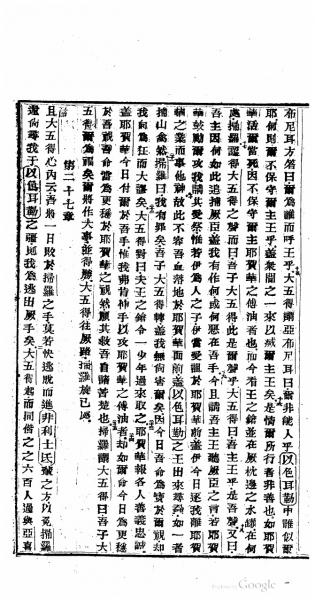 布尼耳方答曰爾爲誰而呼王乎大五得謂亞布尼耳曰爾非能人乎以色耳勒中誰似爾
耶何則爾不保守爾主耶王乎蓋衆間之一來以滅爾主王矣是情爾所行者非善也如耶賀
華活爾當死因不保守爾主耶賀華之傅油者也而今看王之鎗並在厥枕邊之水罇在何
處掃羅認得大五得之聲而曰吾子大五得此是爾聲乎大五得曰吾主王乎是吾聲又曰
吾主因何如此追捕厥臣蓋我有作何或何惡在吾手今且請吾主王聽厥臣之言若耶賀
華鼓動爾攻我請其受祭惟若伊爲人之子伊當受詛於耶賀華前蓋伊今日逐我離耶賀
華之業而事他神故此不容吾血落地於耶賀華面前蓋以色耳勒之王出來尋蚤如一者
掃山然掃羅曰我有罪矣吾子大五得轉蓋我無復害爾矣因今日吾命爲寶於爾視却
我向爲狂而大謬矣大五得對曰夫王之鎗令一少年過來取之耶賀華報各人善義忠誠
蓋耶賀華今日付爾于吾手惟我弗肯伸手以攻耶賀華之傅油者却如爾命今日爲更穩
於吾視吾命當爲更穩於耶賀華之視然願其救吾自諸苦楚也掃羅謂大五得曰吾子大
五得爾爲福矣爾將作大事並得勝大五得往厥路掃羅旋已處
第二十七章
且大五得心內云吾將一日敗於掃羅之手莫若快逃脫而進非利士氐號之方以免掃羅
還尚尋我于以色耳勒之疆則我爲逃出厥手矣大五得起而同偕之之六百人過與亞喜
Google